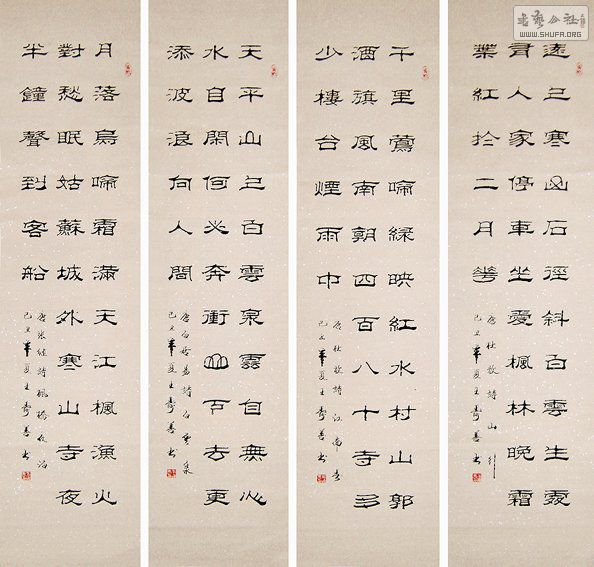 書藝公社
WWW.SHUFA.ORG
遠上寒山石徑斜白雲生處
有人家停車坐愛楓林晚霜
葉紅於二月花
唐杜牧詩山行
己丑年夏王壽善書
千里鶯啼綠映紅水村山郭
酒旗風南朝四百八十寺多
少樓臺煙雨中
唐杜牧詩江南春
己丑年夏王壽善書
天平山上白雲泉雲自無心
水自閑何必奔衝山下去更
添波浪向人間
唐白居易詩白雲泉
己丑年夏王壽善書
月落烏啼霜滿天江楓漁火
對愁眠姑蘇城外寒山寺夜
半鐘聲到客船
唐張繼詩楓橋夜泊
己丑年夏王壽善書